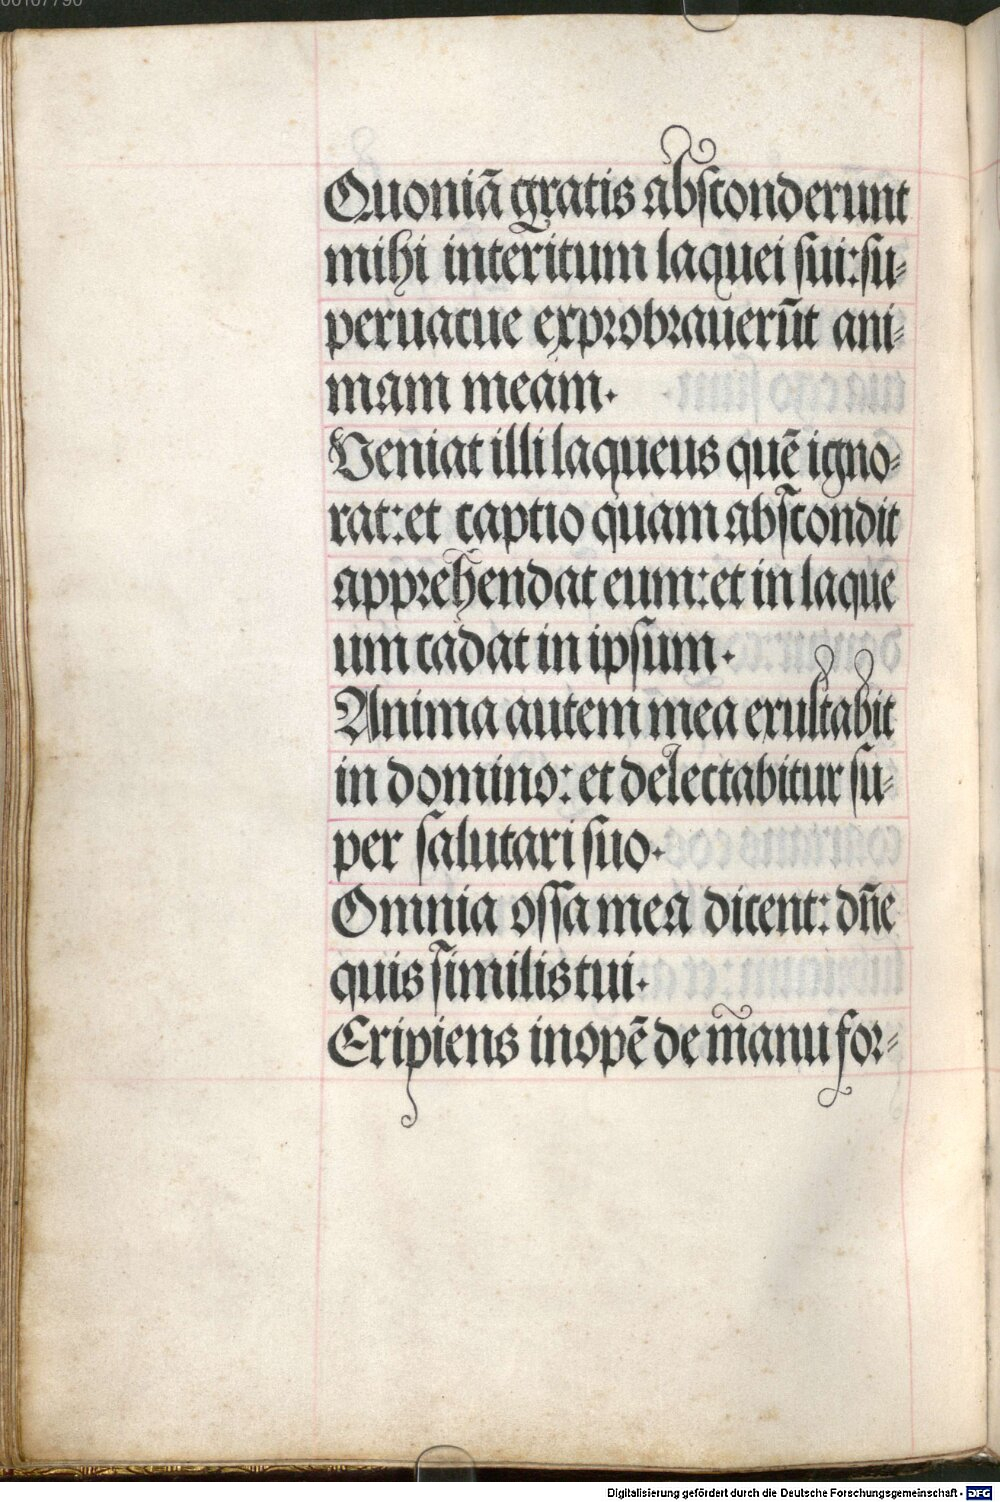 00107790
Quoniā gratis absconderunt
mihi interitum laquei sui: su-
peruacue exprobrauerūt ani-
mam meam.
Veniat illi laqueus quē igno-
rat: et captio quam abscondit
apprehendat eum: et in laque
um cadat in ipsum.
Anima autem mea exultabit
in domino: et delectabitur su-
per salutari suo.
Omnia ossa mea dicent: dn̄e
quis similis tui.
Eripiens inopē de manu for-
Digitalisierung gefördert durch die Deutsche Forschungsgemeinschaft - DFG